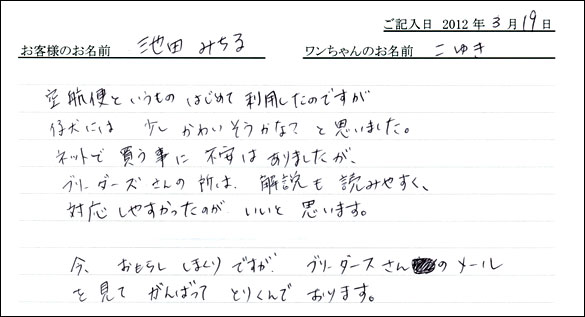 ご記入日 2012 年 3 月 19 日
お客様のお名前 池田 みちる ワンちゃんのお名前 こゆき
空航便というもの はじめて 利用したのですが
仔犬には 少し かわいそうかな? と思いました。
ネットで 買う事に 不安は ありましたが、
ブリーダーズ さんの 所は、解説も 読みやすく、
対応 しやすかったのが いいと 思います。
今、おもらし しまくり ですが ブリーダース さん のメール
を見て がんばって とりくんで おります。